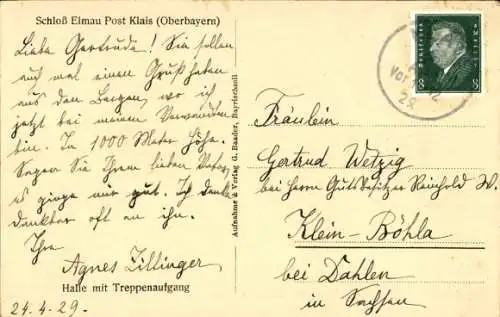 Schloß Elmau Post Klais (Oberbayern)
Liebe Gertrude! Sie sollen
auch mal einen Gruß haben
aus den Bergen, wo ich
jetzt bei meinen Verwandten
bin. In 1000 Meter Höhe.
Sagen Sie Ihrem lieben Vater,
es ginge mir gut. Ich denke
dankbar oft an ihn.
Ihre
Agnes Zillinger
Halle mit Treppenaufgang
24.4.29.
Aufnahme & Verlag G. Baader, Bayrischzell
Deutsches Reich
8 8
Fräulein
Gertrud Wetzig
bei Herrn Gutsbesitzer Reinhold W.
Klein-Böhla
bei Dahlen
in Sachsen